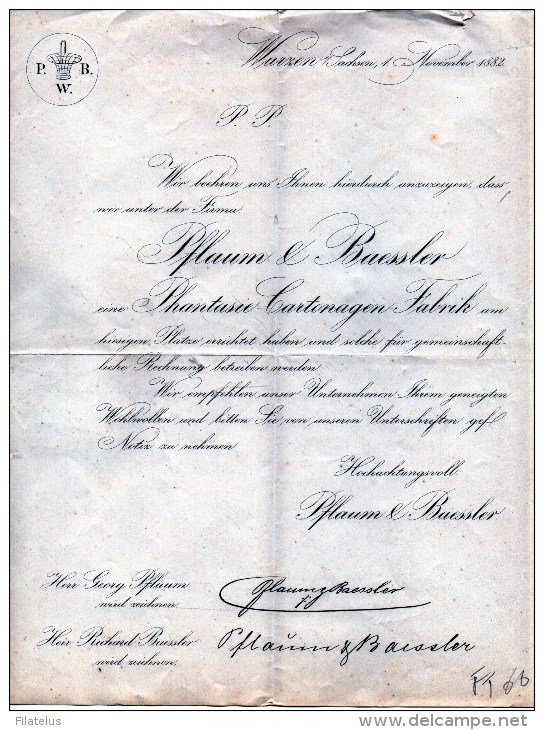 P. B.
W.
Wurzen i/Sachsen, 1. November 1882.
P. P.
Wir beehren uns Ihnen hierdurch anzuzeigen, dass
wir unter der Firma:
Pflaum & Baessler
eine Phantasie-Cartonagen-Fabrik am
hiesigen Platze errichtet haben und solche für gemeinschaft-
liche Rechnung betreiben werden.
Wir empfehlen unser Unternehmen Ihrem geneigten
Wohlwollen und bitten Sie von unseren Unterschriften gef.
Notiz zu nehmen.
Hochachtungsvoll
Pflaum & Baessler
Herr Georg Pflaum
wird zeichnen:
Pflaum & Baessler
Herr Richard Baessler
wird zeichnen:
Pflaum & Baessler
Filatelus
delcampe.net